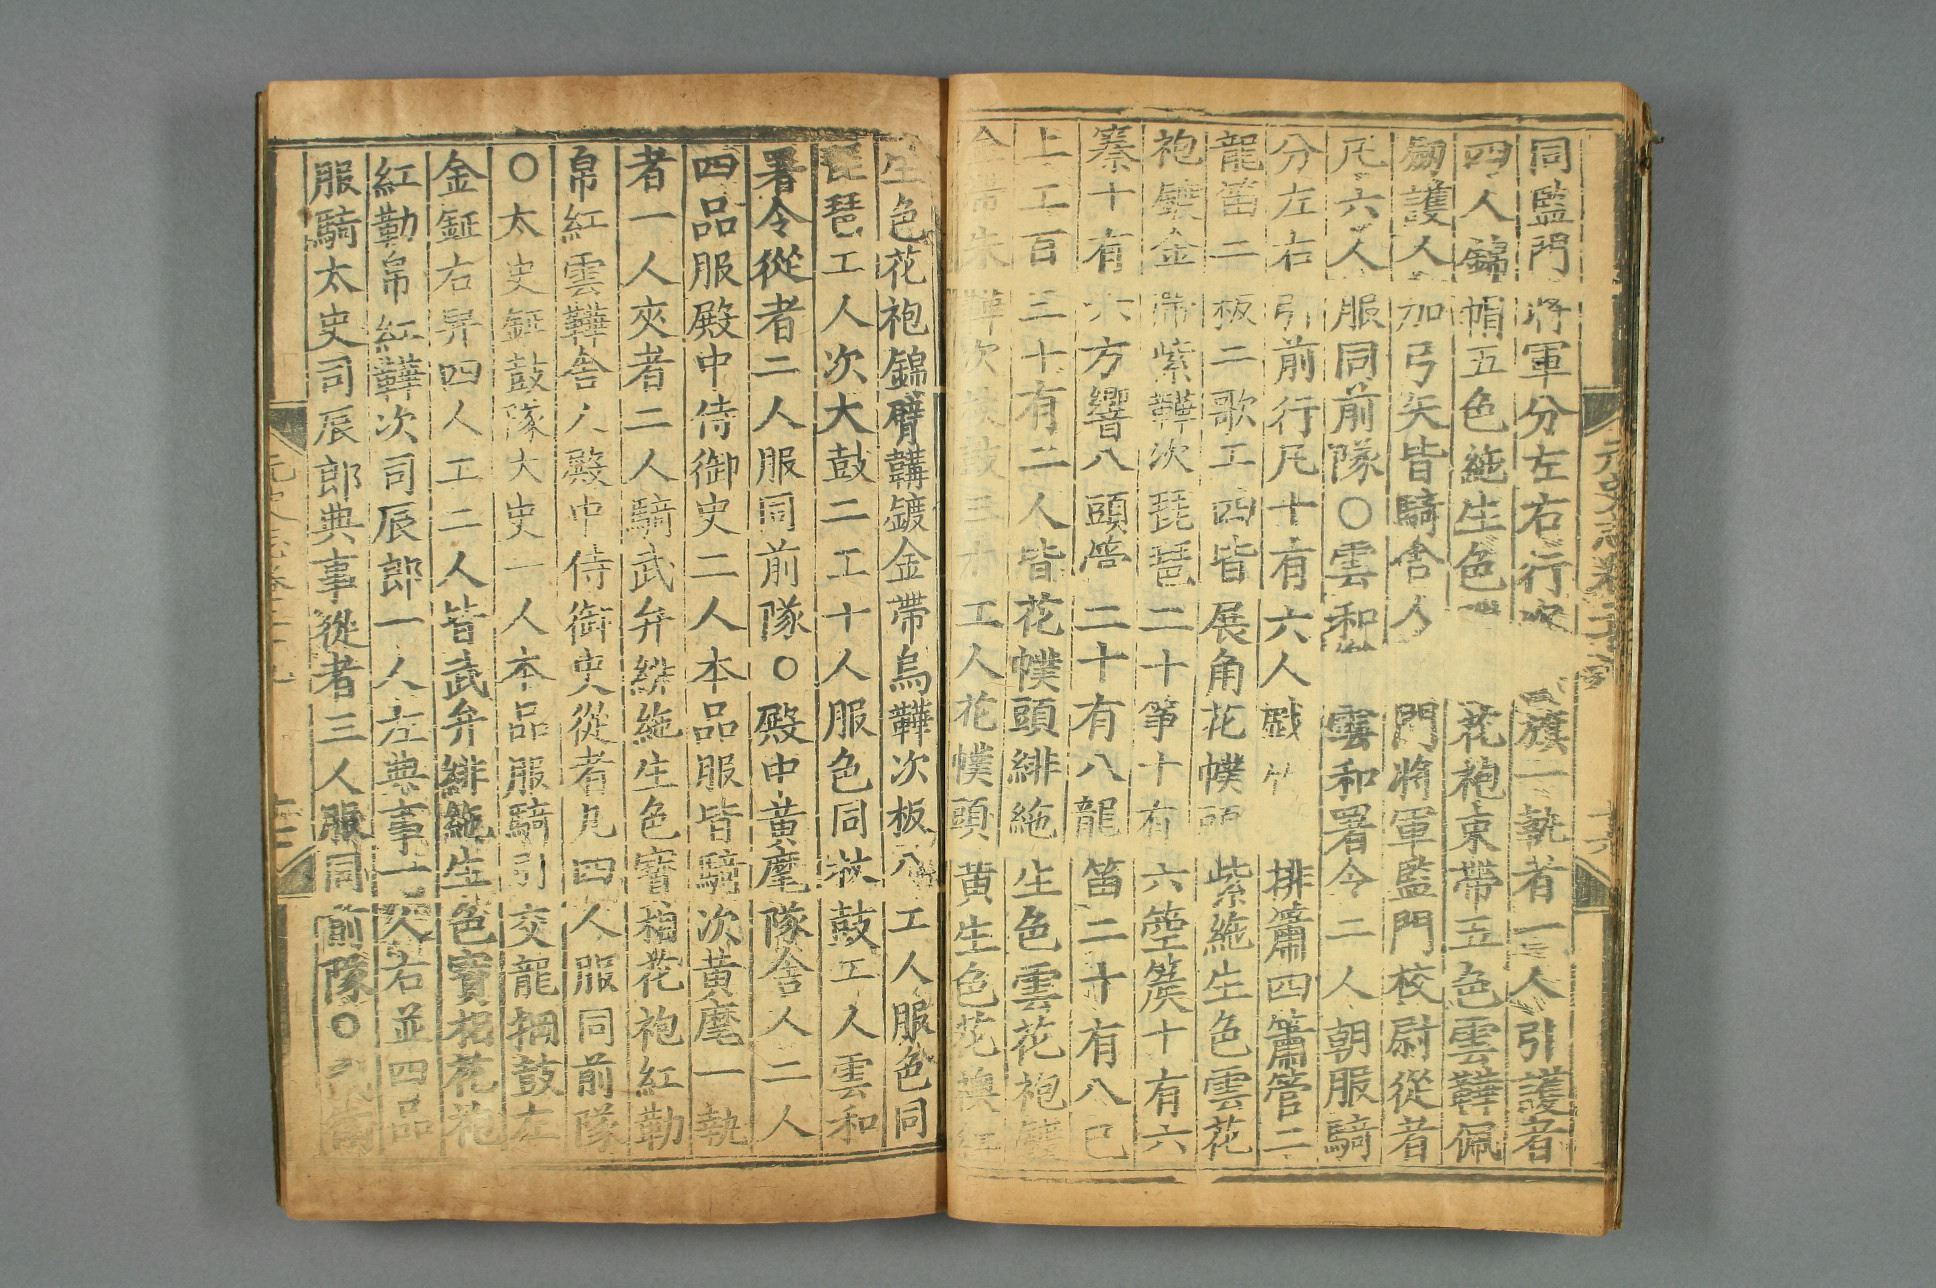 同監門將軍分左右行次 旗一執者一人引護者
四人錦帽五色絁生色 花袍束帶五色雲鞾佩
劒護人加弓矢皆騎舍人 門將軍監門校尉從者
凡六人服同前隊○雲和 雲和署令二人朝服騎
分左右引前行凡十有六人戱竹 排簫四簫管二
龍笛二板二歌工四皆展角花幞頭紫絁生色雲花
袍鍍金帶紫鞾次琵琶二十箏十有六箜篌十有六
𥱧十有六方響八頭管二十有八龍笛二十有八已
上工百三十有二人皆花幞頭緋絁生色雲花袍鍍
金帶朱鞾次杖鼓三十工人花幞頭黃生色花襖紅
生色花袍錦臂韝鍍金帶烏鞾次板八工人服色同
琵琶工人次大鼓二工十人服色同杖鼓工人雲和
署令從者二人服同前隊○殿中黃麾隊舍人二人
四品服殿中侍御史二人本品服皆騎次黃麾一執
者一人夾者二人騎武弁緋絁生色寶相花袍紅勒
帛紅雲鞾舍人殿中侍御史從者凡四人服同前隊
○太史鉦鼓隊太史一人本品服騎引交龍掆鼓左
金鉦右舁四人工二人皆武弁緋絁生色寶相花袍
紅勒帛紅鞾次司辰郎一人左典事一人右並四品
服騎太史司辰郎典事從者三人服同前隊○武衛
元史志卷二十九
十六
元史志卷二十九